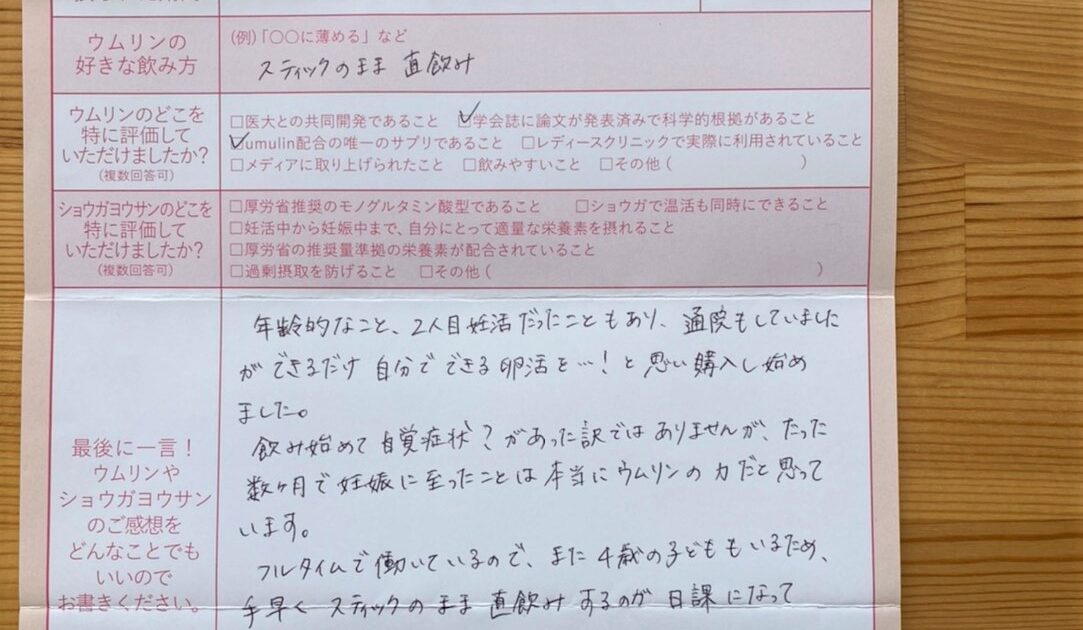 ウムリンの
好きな飲み方
(例)「〇〇に薄める」など
スティックのまま 直飲み
ウムリンのどこを
特に評価して
いただけましたか?
(複数回答可)
□医大との共同開発であること ☑学会誌に論文が発表済みで科学的根拠があること
☑umulin配合の唯一のサプリであること □レディースクリニックで実際に利用されていること
□メディアに取り上げられたこと □飲みやすいこと □その他( )
ショウガヨウサンのどこを
特に評価して
いただけましたか?
(複数回答可)
□厚労省推奨のモノグルタミン酸型であること □ショウガで温活も同時にできること
□妊活中から妊娠中まで、自分にとって適量な栄養素を摂れること
□厚労省の推奨量準拠の栄養素が配合されていること
□過剰摂取を防げること □その他( )
最後に一言!
ウムリンや
ショウガヨウサン
のご感想を
どんなことでも
いいので
お書きください。
年齢的なこと、2人目妊活だったこともあり、通院もしていました
ができるだけ 自分で できる 卵活を…!と思い購入し始め
ました。
飲み始めて自覚症状?があった訳ではありませんが、たった
数ヶ月で妊娠に至ったことは本当にウムリンの力だと思って
います。
フルタイムで働いているので、また4歳の子どももいるため、
手早く スティックのまま 直飲みするのが 日課になって